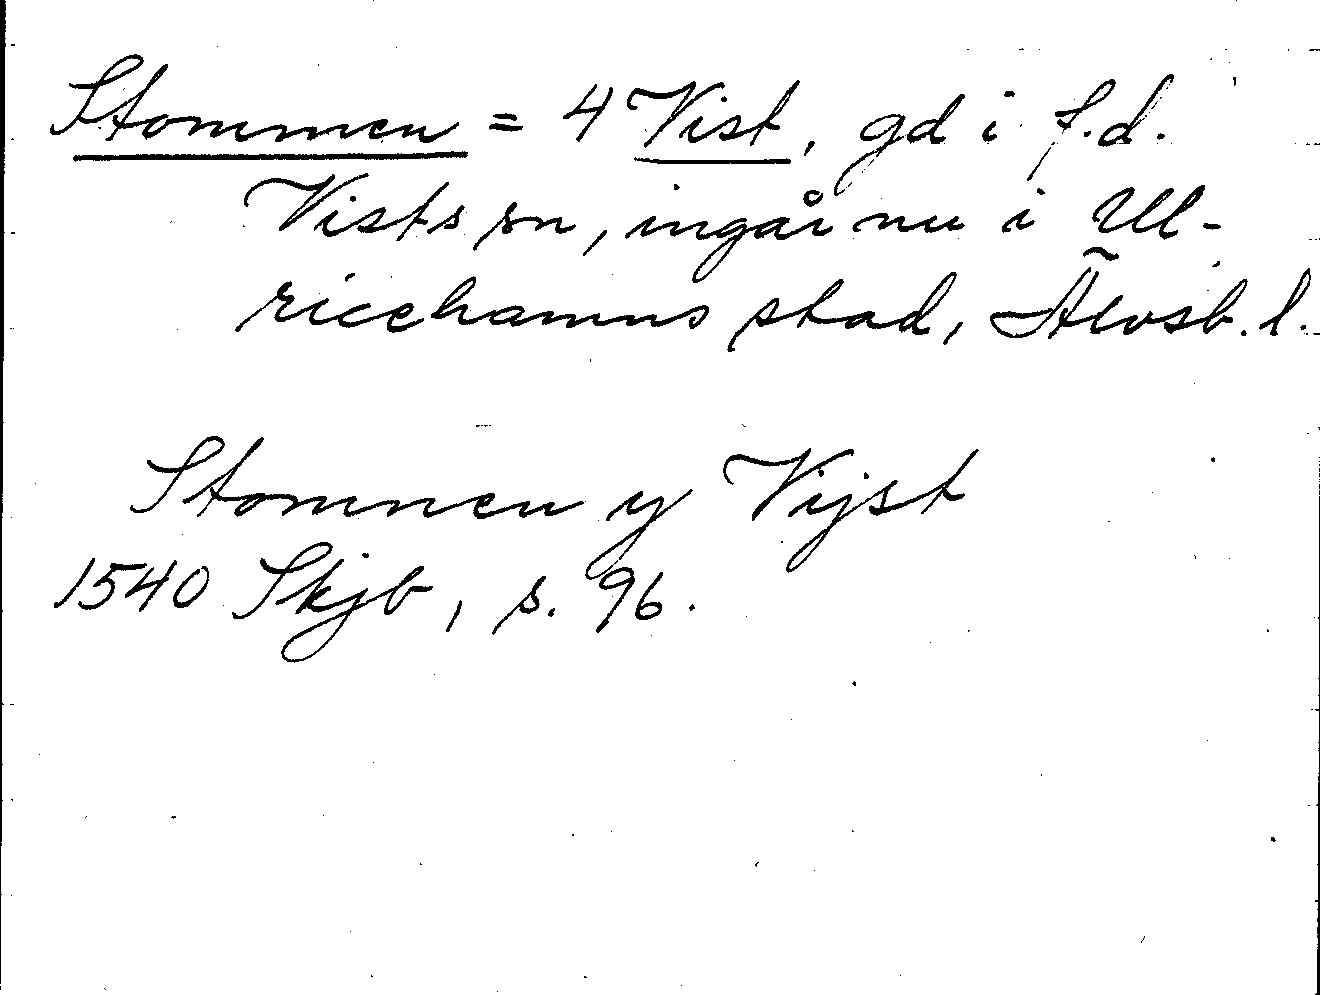 Stommen = 4 Vist, gd i f.d.
Vists sn, ingår nu i Ul-
ricehamns stad, Älvsb. l.
Stomnen y Vijst
1540 Skjb, s. 96.